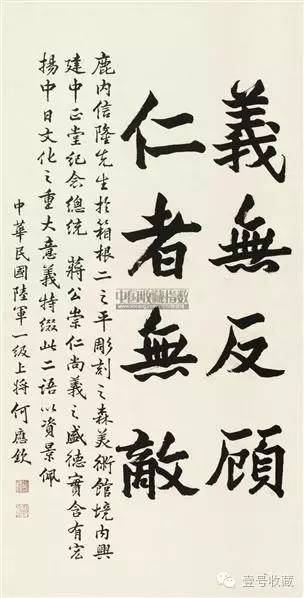 義無反顧
仁者無敵
鹿內信隆先生於箱根二之平彫刻之森美術館境內興
建中正堂紀念總統　蔣公崇仁尚義之盛德實含有宏
揚中日文化之重大意義特綴此二語以資景佩
中華民國陸軍一級上將何應欽
中国收藏指数
壹号收藏